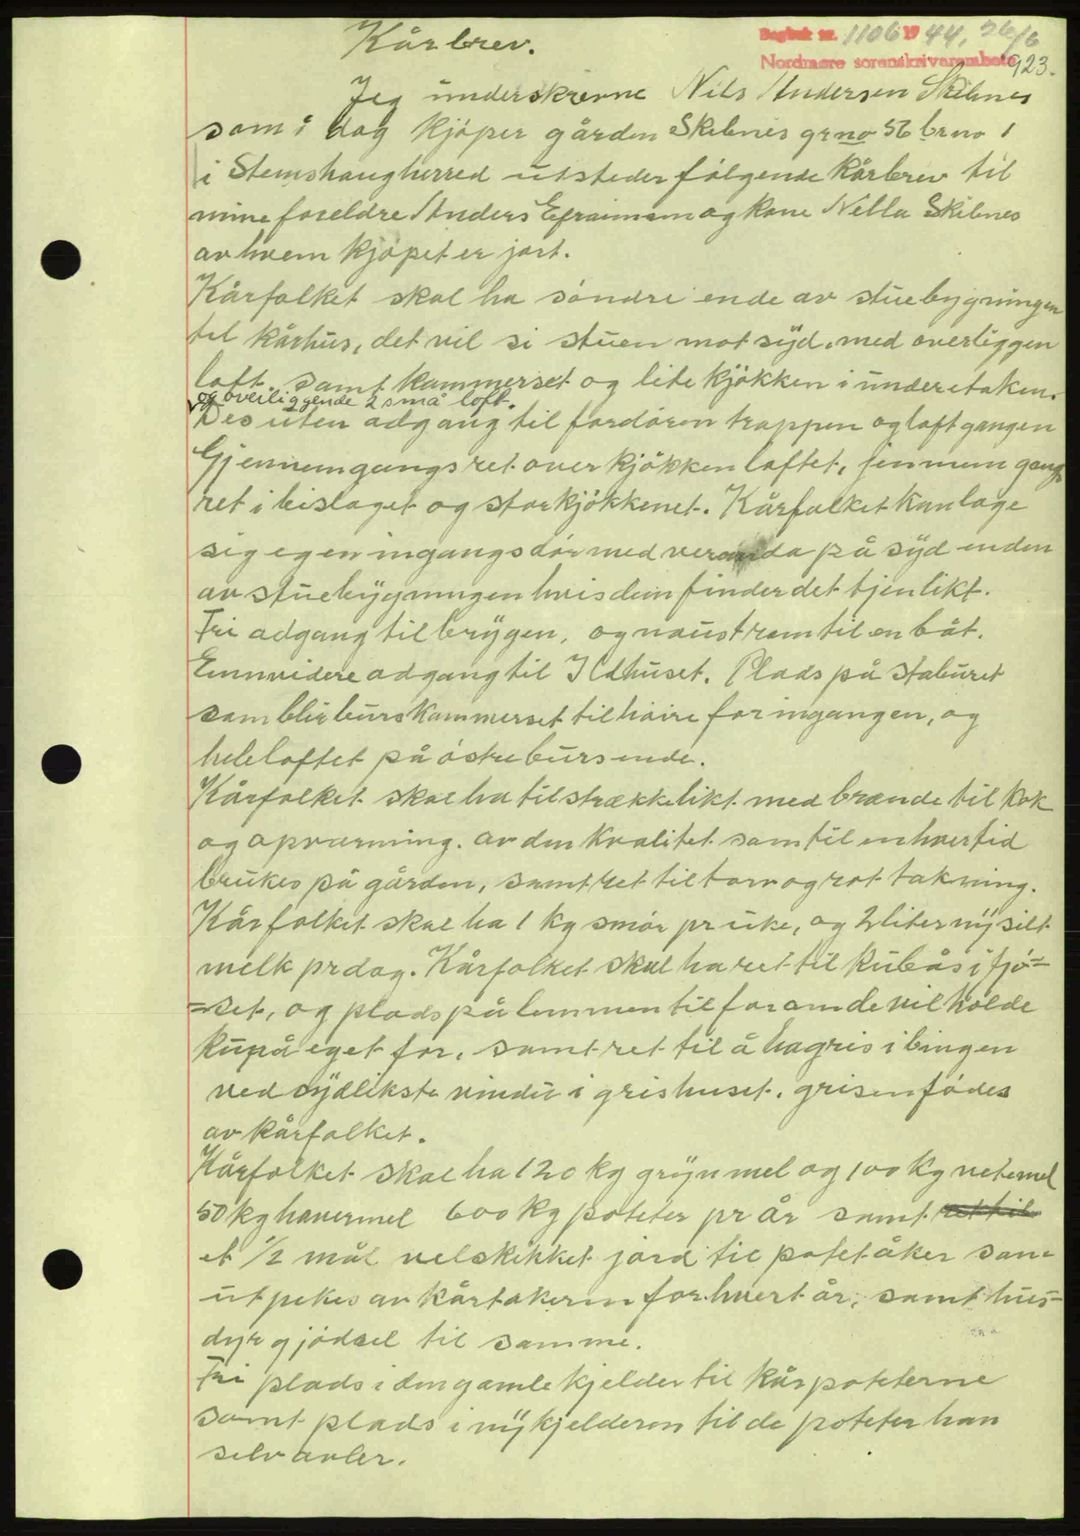 Kårbrev.
Dagbok nr. 1106 19 44, 26/6
Nordmøre sorenskriverembete 923.
Jeg underskrevne Nils Andersen Skibnes
som i dag kjøper gården Skibnes grno 56 brno 1
i Stemshaug herred utsteder følgende kårbrev til
mine foreldre Anders Efraimsen og kone Nella Skibnes
av hvem kjøpet er jort.
Kårfolket skal ha søndre ende av stuebygningen
til kårhus, det vil si stuen mot syd, med overliggen
loft, samt kammerset og lite kjøkken i undere taken.
og overliggende 2 små loft.
Des uten adgang til fordøren trappen og loft gangen
Gjennemgangsret over kjøkken loftet, jennem gangs
ret i bislaget og storkjøkkenet. Kårfolket kan lage
sig egen ingangsdør med veranda på syd enden
av stuebygningen hvis dem finder det tjenlikt.
Fri adgang til brygen, og naustrom til en båt.
Ennvidere adgang til Ildhuset. Plads på staburet
som blir burskammerset til høire for ingangen, og
hele loftet på østre bursende.
Kårfolket skal ha tilstrækkelikt med brænde til kok
og opvarming. av den kvalitet som til enhver tid
brukes på gården, samt ret til torv og rot takning.
Kårfolket skal ha 1 kg smør pr uke, og 2 liter nysilt
melk pr dag. Kårfolket skal ha ret til kubås i fjø=
=set, og plads på lemmen til for om de vil holde
ku på eget for, samt ret til å ha gris i bingen
ved sydlikste vindu i grishuset. grisen fødes
av kårfolket.
Kårfolket skal ha 120 kg grynmel og 100 kg vetemel
50 kg havermel 600 kg poteter pr år samt ret til
et 1/2 mål velskikket jord til potetåker som
utpekes av kårtakeren for hvert år, samt hus-
dyrgjødsel til samme.
Fri plads i den gamle kjelder til kårpoteterne
samt plads i nykjelderen til de poteter han
selv avler.